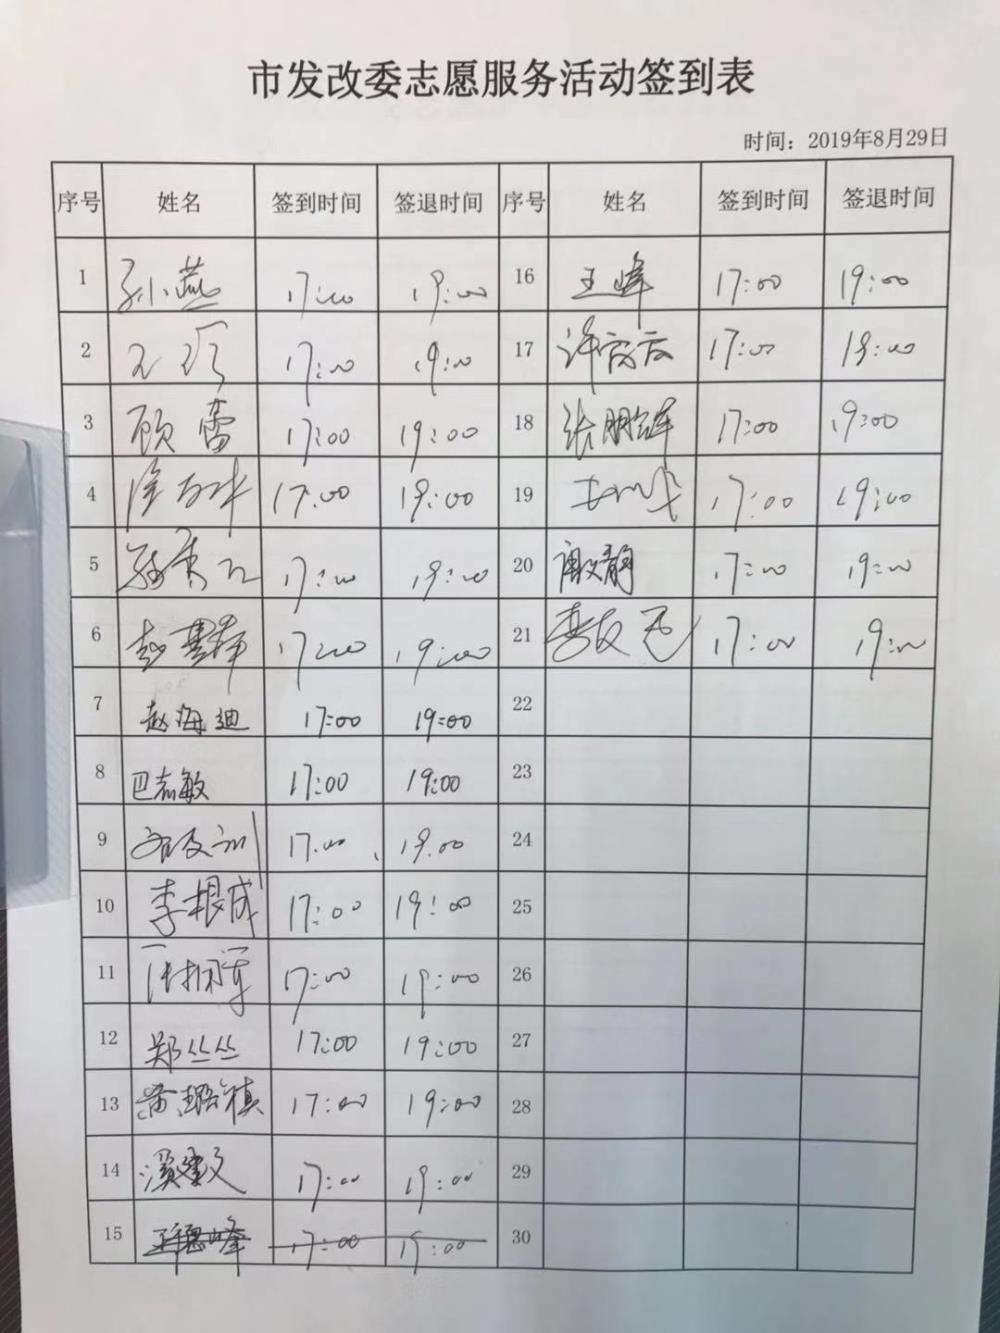 市发改委志愿服务活动签到表
时间：2019年8月29日
序号 姓名 签到时间 签退时间 序号 姓名 签到时间 签退时间
1 孙燕 17:00 19:00 16 王峰 17:00 19:00
2 17:00 19:00 17 许 17:00 19:00
3 顾雷 17:00 19:00 18 张鹏辉 17:00 19:00
4 17:00 19:00 19 17:00 19:00
5 17:00 19:00 20 谢文静 17:00 19:00
6 赵 17:00 19:00 21 李 17:00 19:00
7 赵海迪 17:00 19:00 22
8 巴志敏 17:00 19:00 23
9 17:00 19:00 24
10 李根成 17:00 19:00 25
11 17:00 19:00 26
12 郑丛丛 17:00 19:00 27
13 17:00 19:00 28
14 17:00 19:00 29
15 17:00 19:00 30